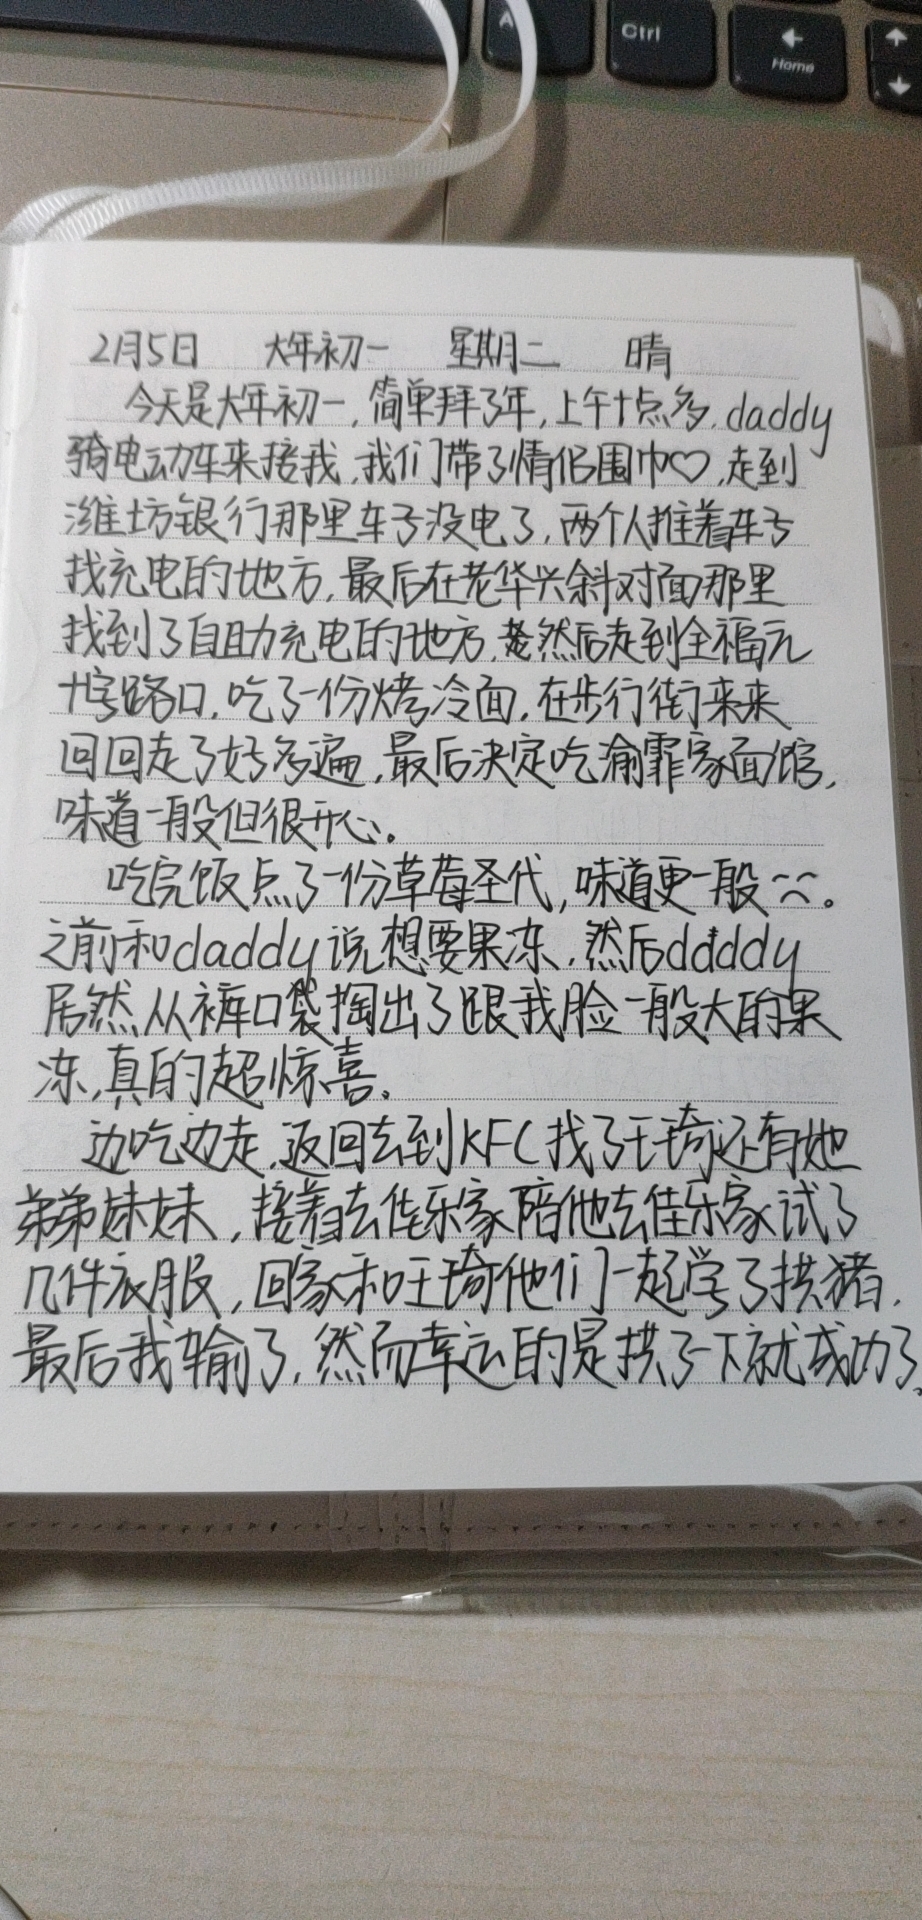 Ctrl
Home
2月5日 大年初一 星期二 晴
今天是大年初一,简单拜了年,上午十点多,daddy
骑电动车来接我,我们带了情侣围巾♡,走到
潍坊银行那里车子没电了,两个人推着车子
找充电的地方,最后在老华兴斜对面那里
找到了自助充电的地方,然后走到全福元
十字路口,吃了一份烤冷面,在步行街来来
回回走了好多遍,最后决定吃渝霏家面馆,
味道一般但很开心。
吃完饭点了一份草莓圣代,味道更一般。
之前和daddy说想要果冻,然后daddy
居然从裤口袋掏出了跟我脸一般大的果
冻,真的超惊喜。
边吃边走,返回去到KFC找了王琦还有她
弟弟妹妹,接着去佳乐家陪他去佳乐家试了
几件衣服,回家和王琦他们一起学了拱猪,
最后我输了,然而幸运的是拱了一下就成功了。